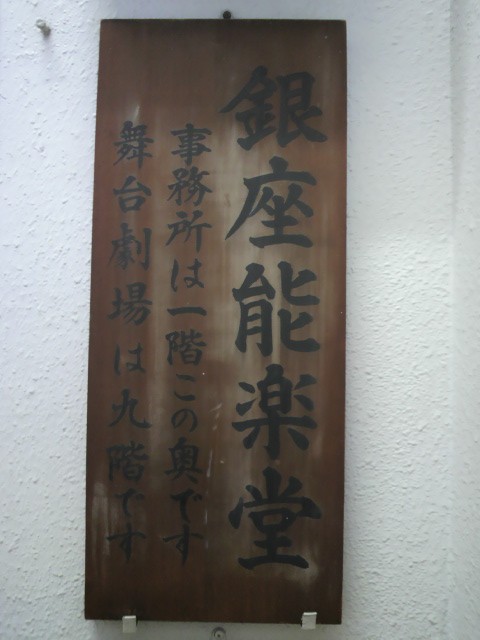 銀座能楽堂
事務所は一階この奥です
舞台劇場は九階です